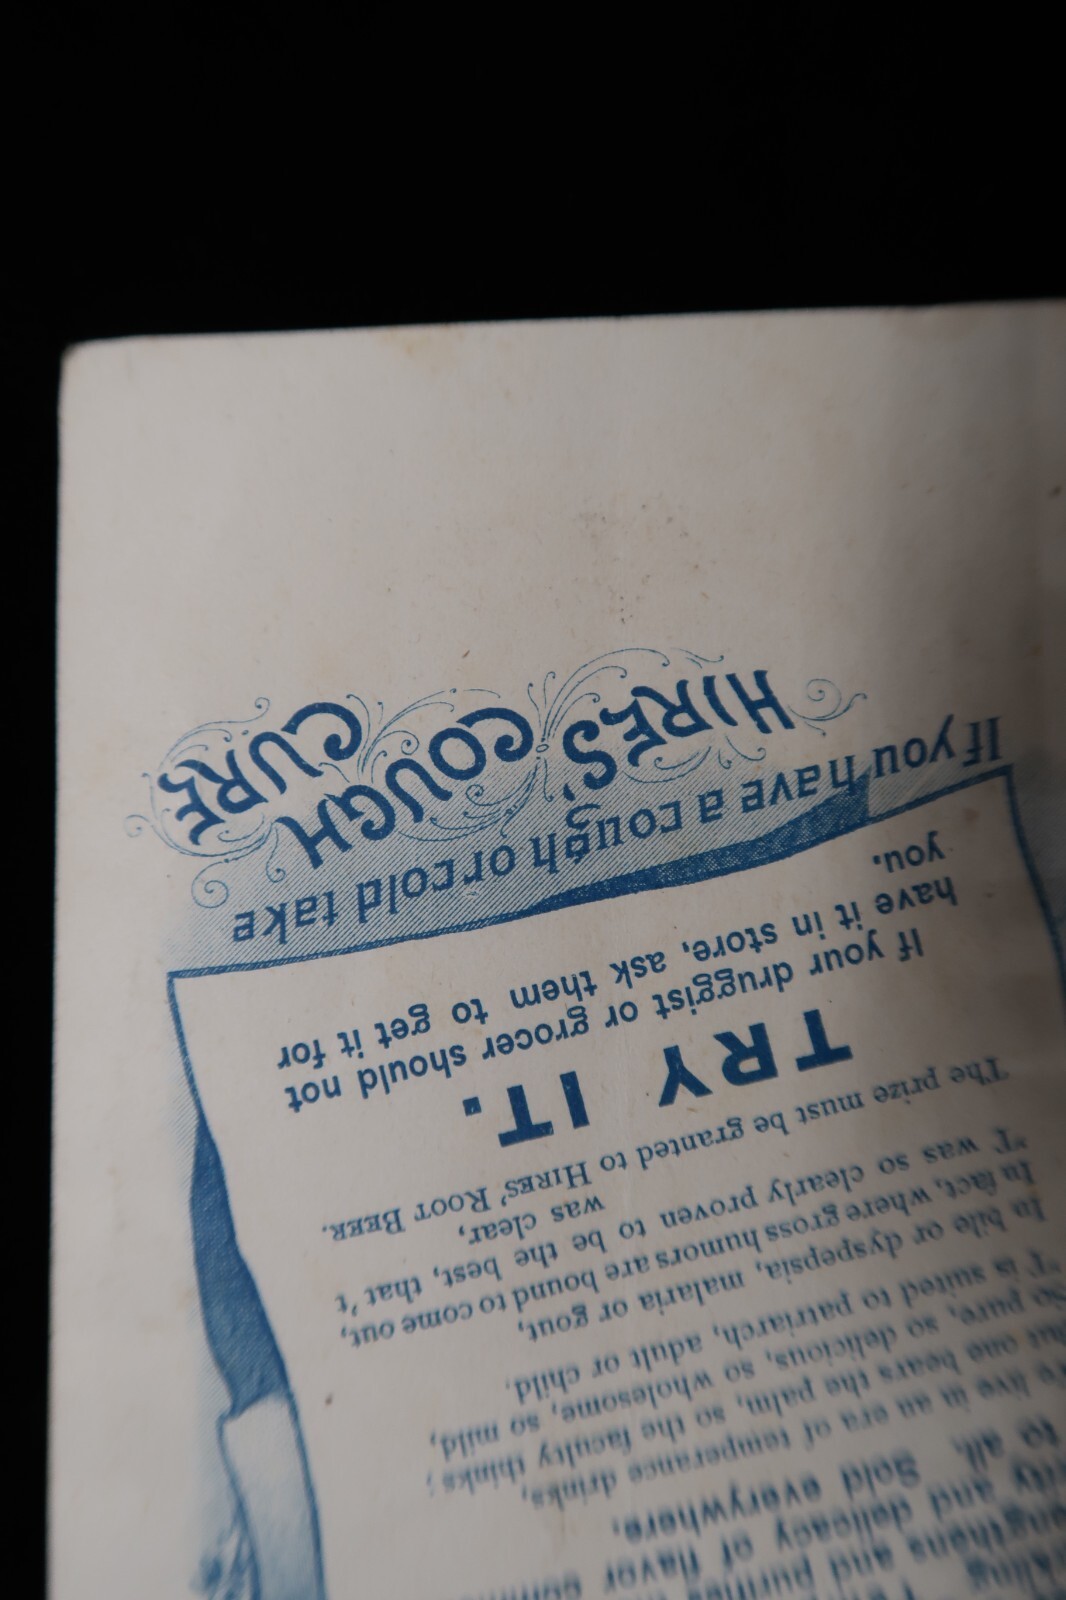 and purifies
engthens and
rity and delicacy of flavor
to all. Sold everywhere.
We live in an era of temperance drinks,
That one bears the palm, so the faculty thinks;
So pure, so delicious, so wholesome, so mild,
'T is suited to patriarch, adult or child.
In bile or dyspepsia, malaria or gout,
In fact, where gross humors are bound to come out,
'T was so clearly proven to be the best, that 't
was clear,
The prize must be granted to HIRES' ROOT BEER.
TRY IT.
If your druggist or grocer should not
have it in store, ask them to get it for
you.
If you have a cough or cold take
HIRES' COUGH CURE